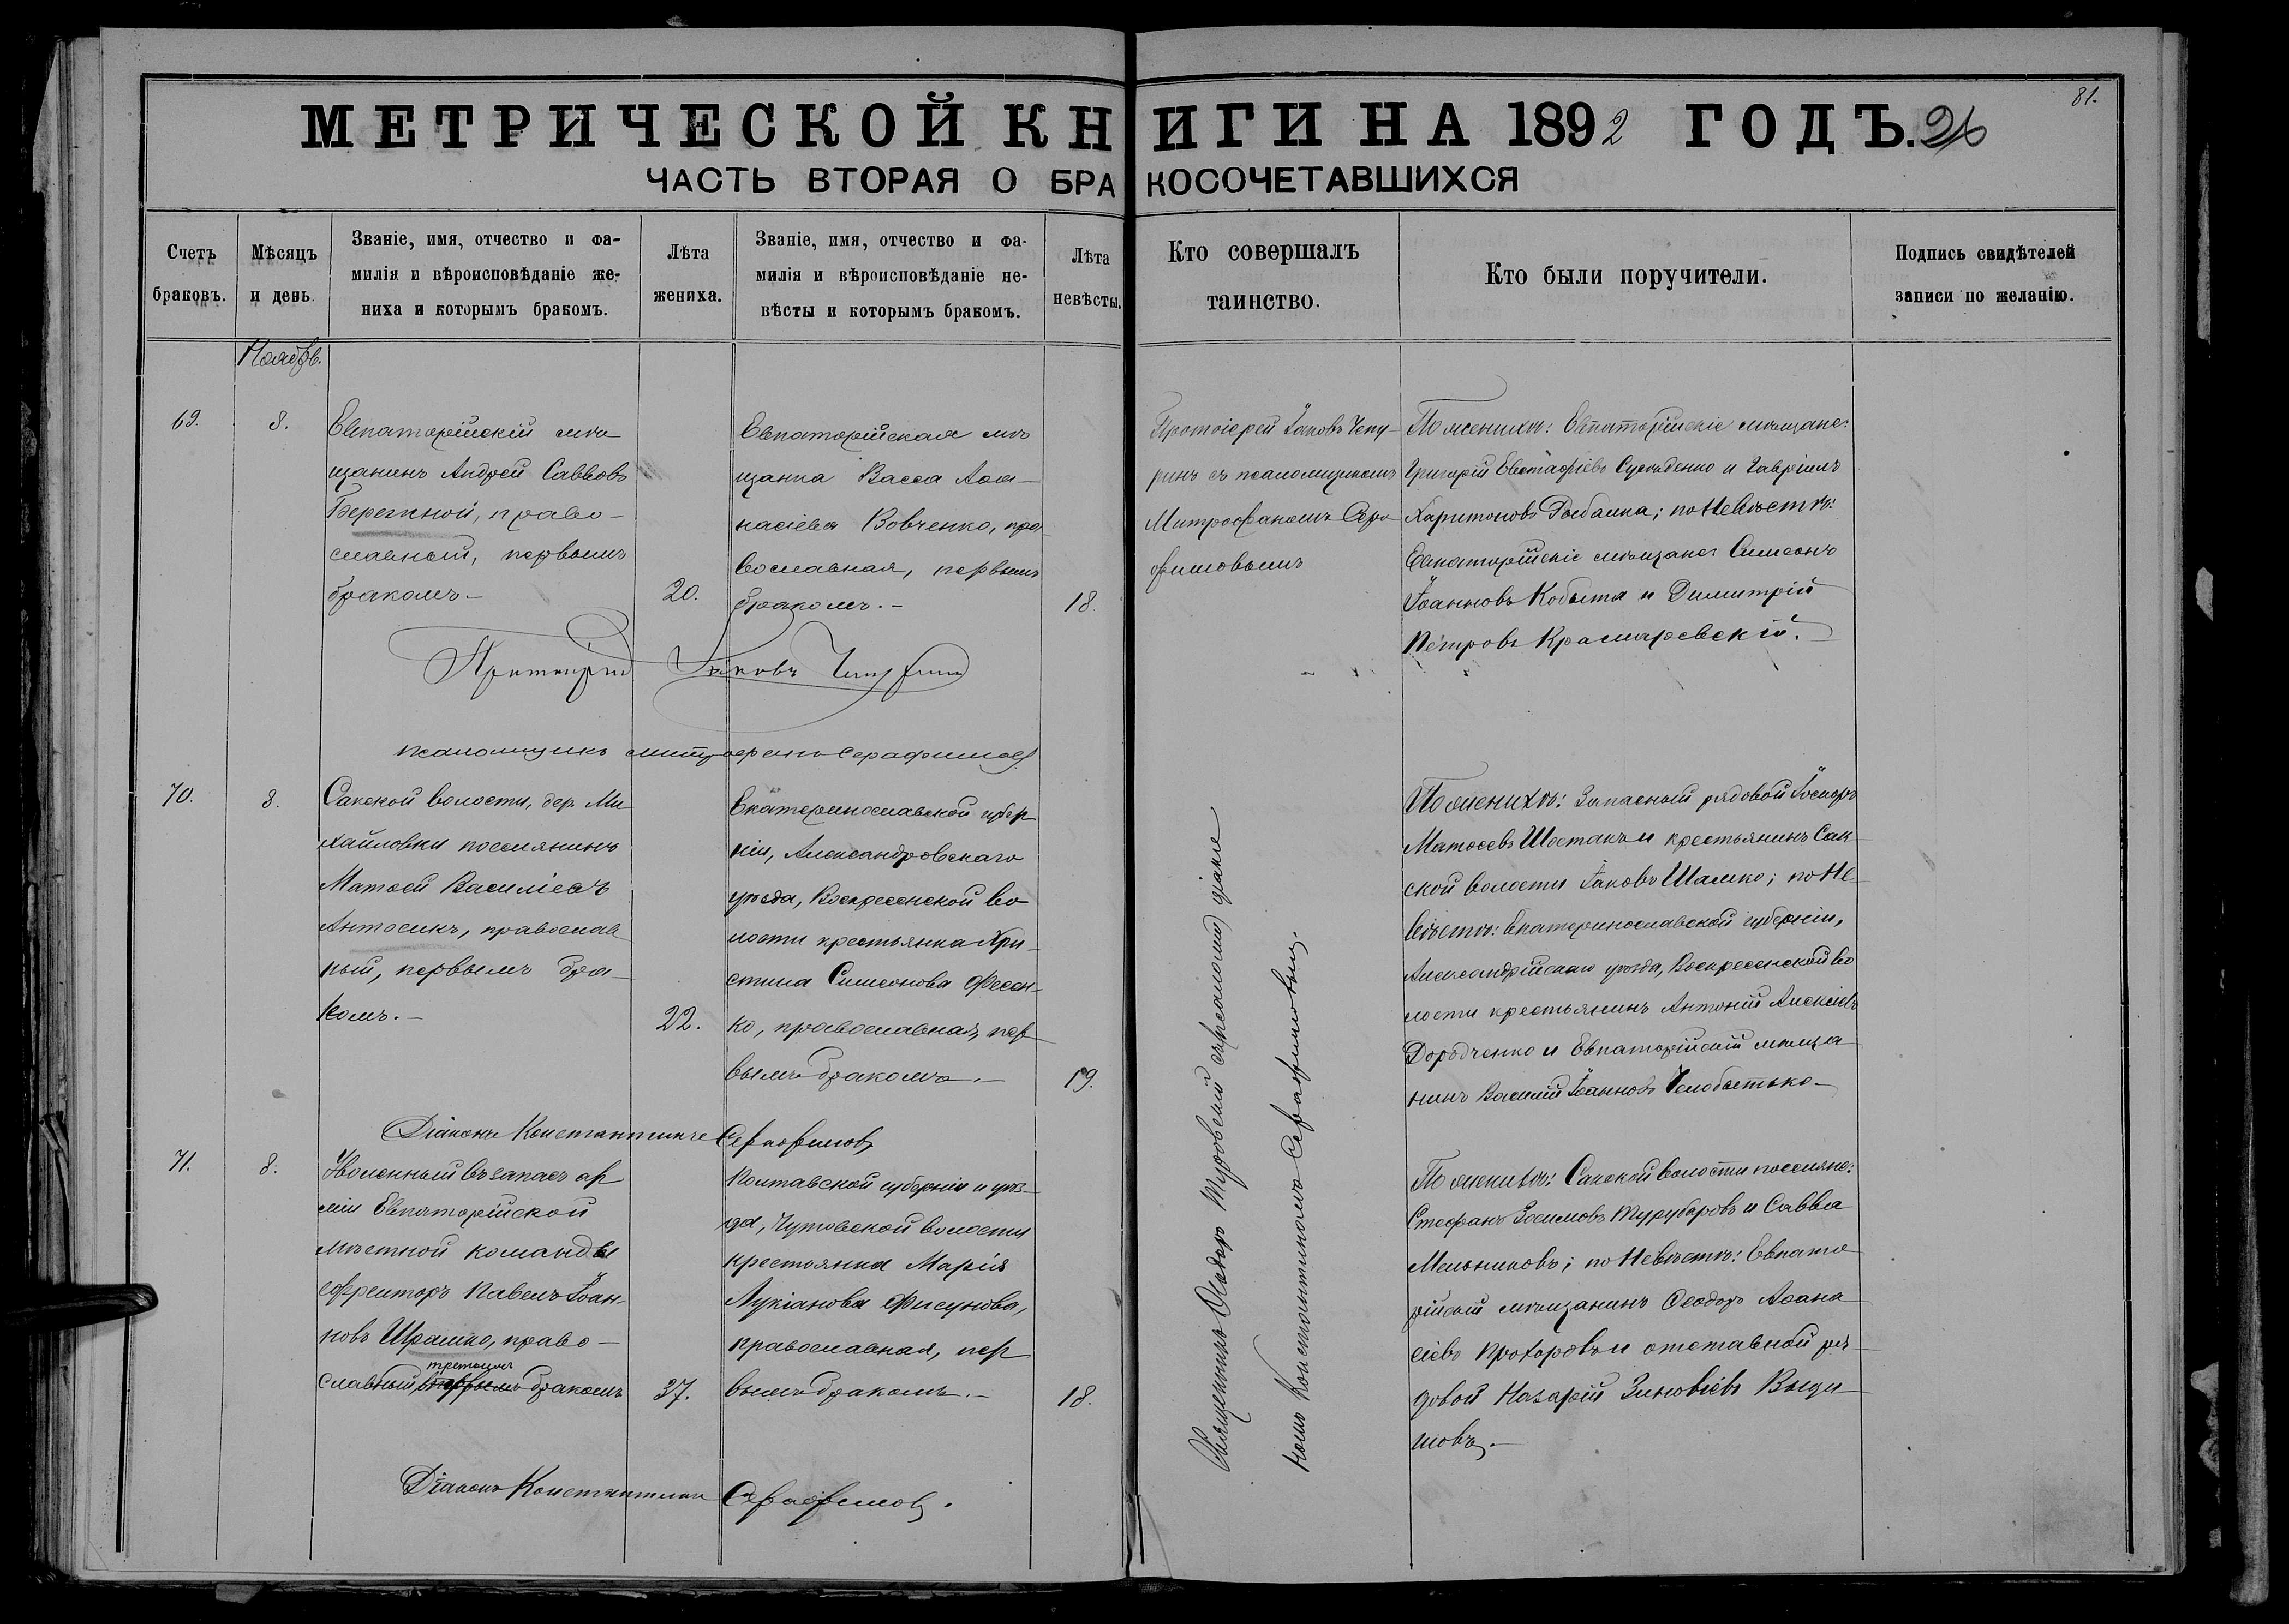 81.
МЕТРИЧЕСКОЙ КНИГИ НА 1892 ГОДЪ. 26
ЧАСТЬ ВТОРАЯ О БРАКОСОЧЕТАВШИХСЯ
Счетъ браковъ.
Мѣсяцъ и день.
Званіе, имя, отчество и фа-
милія и вѣроисповѣданіе же-
ниха и которымъ бракомъ.
Лѣта жениха.
Званіе, имя, отчество и фа-
милія и вѣроисповѣданіе не-
вѣсты и которымъ бракомъ.
Лѣта невѣсты.
Кто совершалъ
таинство.
Кто были поручители.
Подпись свидѣтелей
записи по желанію.
Ноябрь.
69.
8.
Евпаторійскій мѣ
щанинъ Андрей Саввовъ
Бережной, право-
славный, первымъ
бракомъ.-
20.
Евпаторійская мѣ
щанка Васса Аѳа-
насіева Вовченко, пра
вославная, первымъ
бракомъ.-
18.
Протоіерей Іаковъ Чепу-
ринъ съ псаломщикомъ
Митрофаномъ Сера-
фимовымъ
По женихѣ: Евпаторійскіе мѣщане:
Григорій Евстафіевъ и Гавріилъ
Харитоновъ; по Невѣстѣ:
Евпаторійскіе мѣщане Симеонъ
Іоанновъ Кобыта и Димитрій
Петровъ Крамаревскій.
Протоіерей Іаковъ Чепуринъ
псаломщикъ Митрофанъ Серафимовъ
70.
8.
Сакской волости, дер. Ми
хайловки поселянинъ
Матѳей Василіевъ
Антосикъ, православ
ный, первымъ бра-
комъ.-
22.
Екатеринославской губер
ніи, Александровскаго
уѣзда, Воскресенской во
лости крестьянка Хри-
стина Симеонова Фесен-
ко, православная, пер
вымъ бракомъ.-
19.
Священникъ Ѳеодоръ
номъ Константиномъ Серафимовымъ.
По женихѣ: Запасный рядовой Іосифъ
Матѳеевъ Шостакъ и крестьянинъ Сак-
ской волости Іаковъ Шамко; по Не
вѣстѣ: Екатеринославской губерніи,
Александрійскаго уѣзда, Воскресенской во
лости крестьянинъ Антоній Алексіевъ
и Евпаторійскій мѣща-
нинъ Василій Іоанновъ Челобитько-
Діаконъ Константинъ Серафимовъ
71.
8.
Уволенный въ запасъ ар
міи Евпаторійской
мѣстной команды
ефрейторъ Павелъ Іоан-
новъ Шрамко, право-
третьимъ
славный первымъ бракомъ
37.
Полтавской губерніи и уѣз-
да, Чутовской волости
крестьянка Марія
Лукіанова Фисунова,
православная, пер
вымъ бракомъ.-
18.
По женихѣ: Сакской волости поселяне:
Стефанъ Зосимовъ Турубаровъ и Савва
Мельниковъ; по Невѣстѣ: Евпато
рійскій мѣщанинъ Ѳеодоръ Аѳана
сіевъ Прохоровъ и отставной ря
довой Назарій Зиновіевъ
Діаконъ Константинъ Серафимовъ.